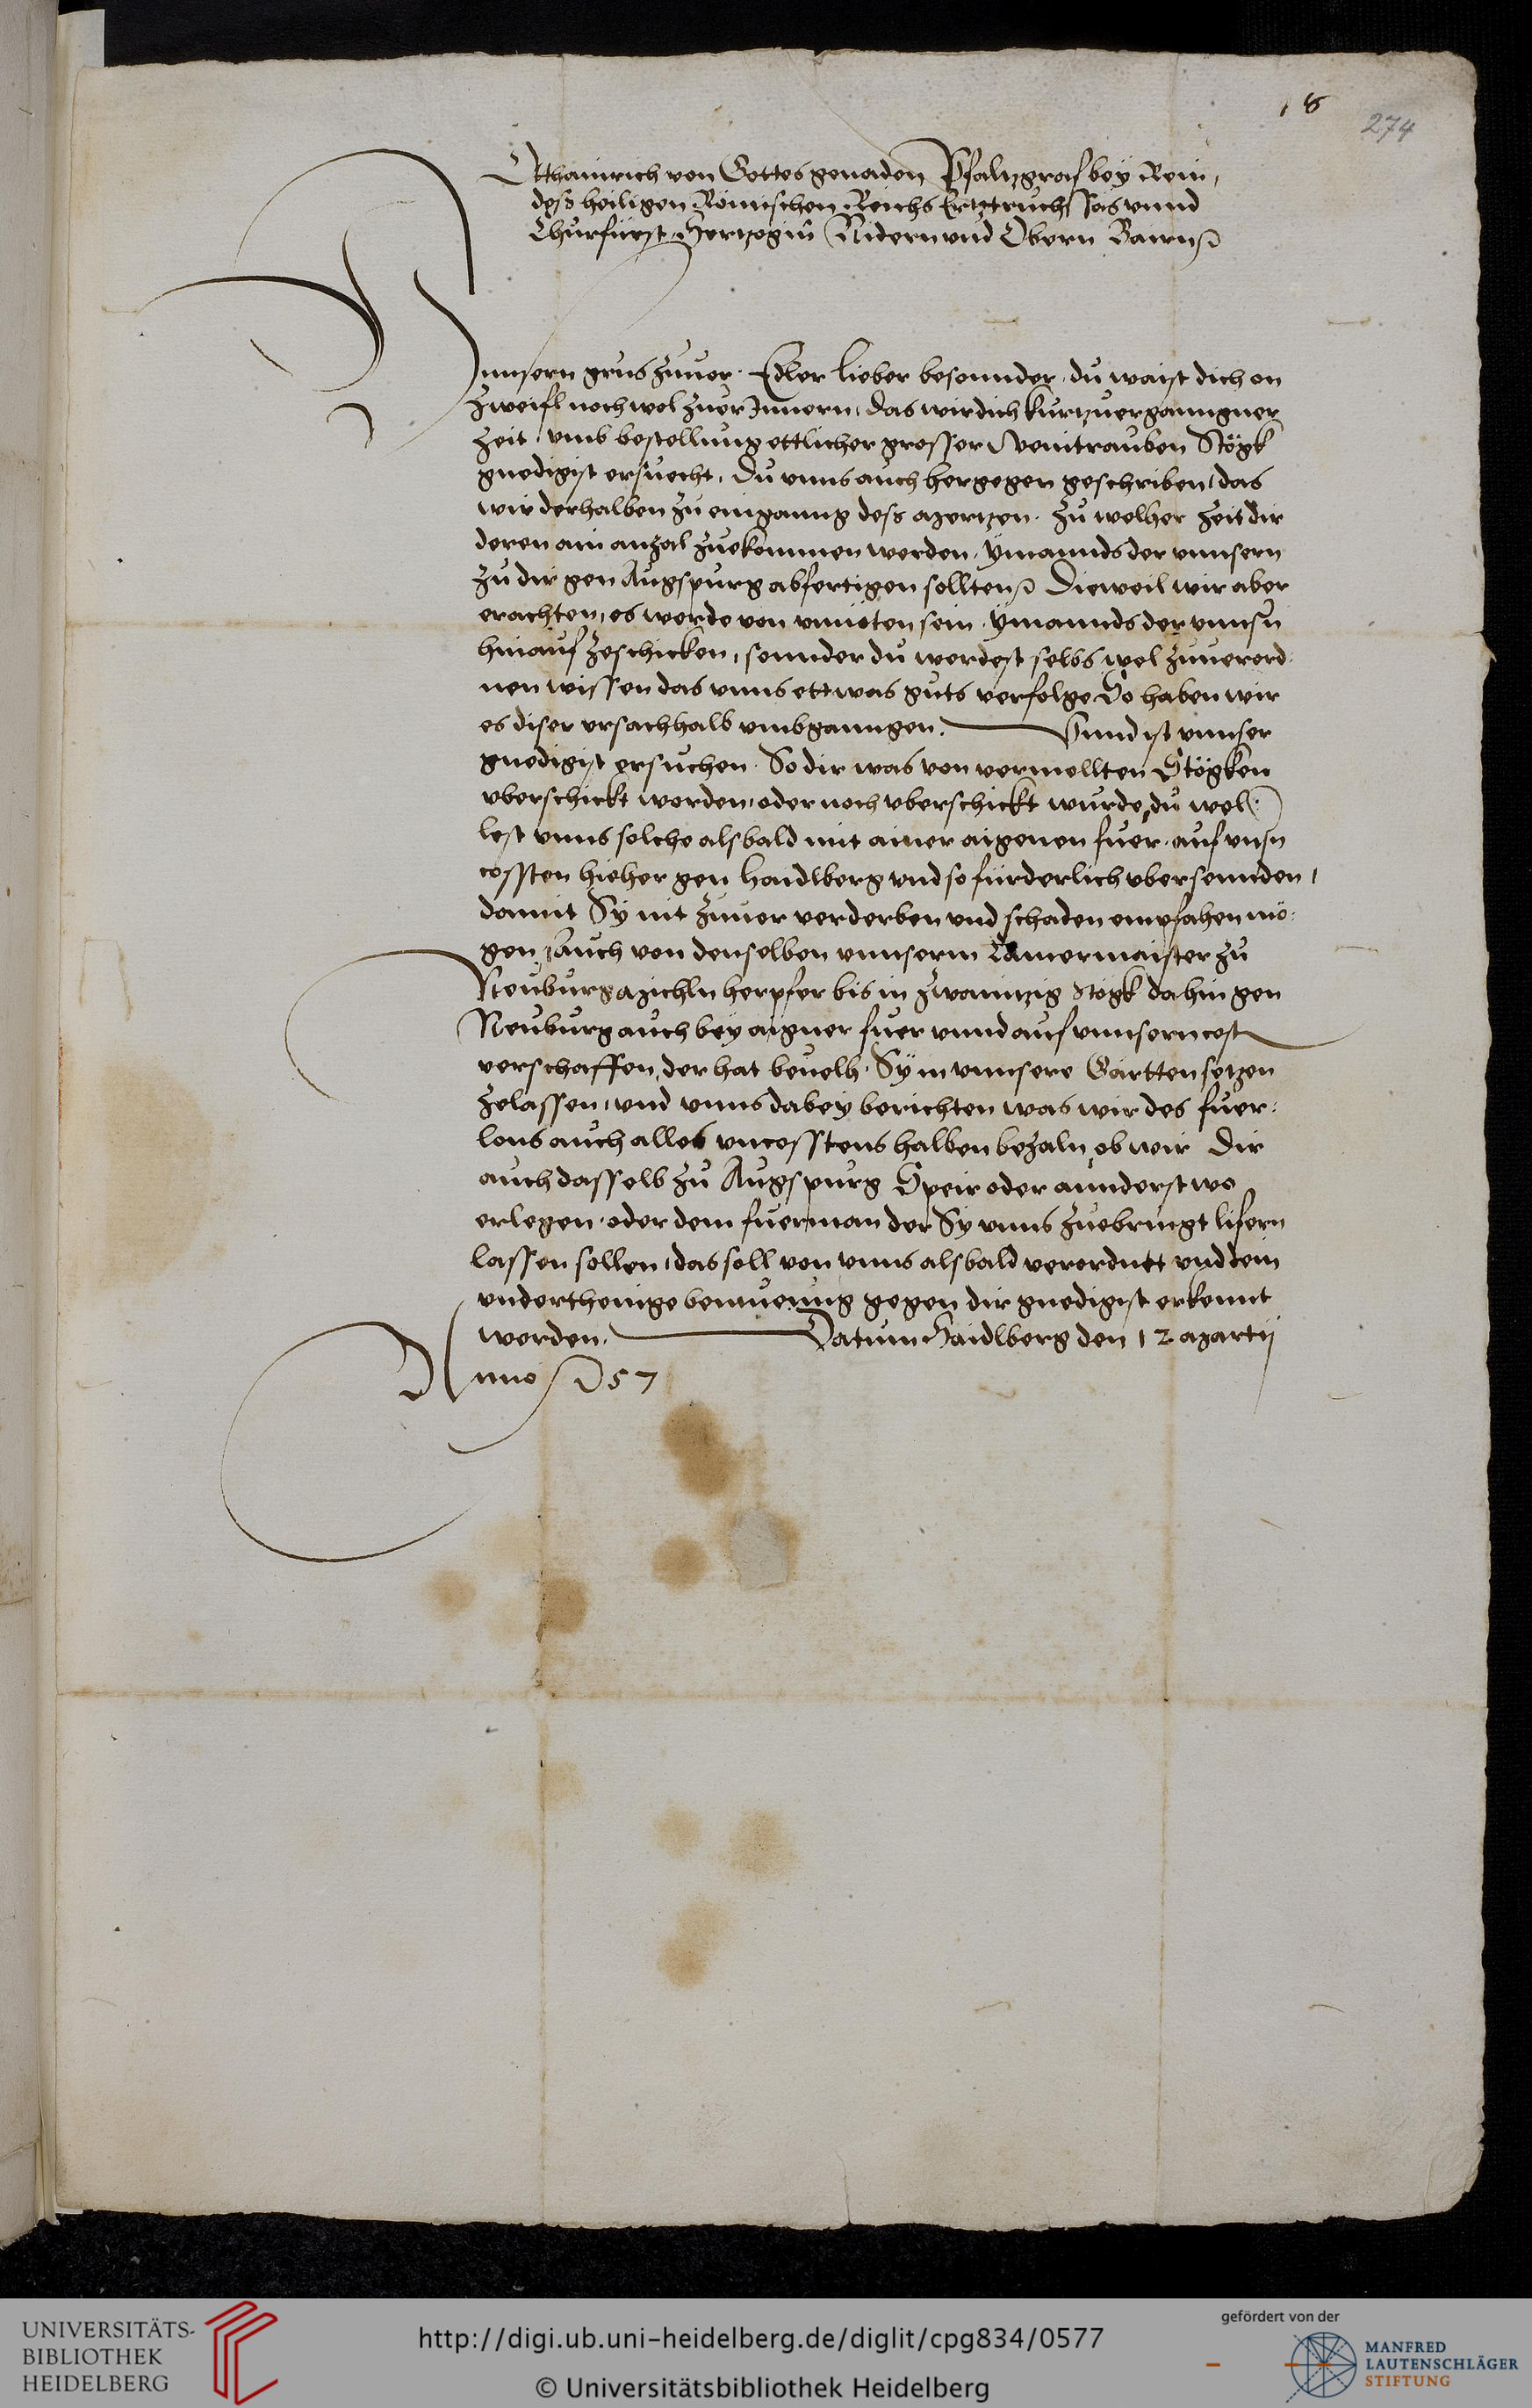 18
274
Otthainrich von Gottes genaden Pfaltzgraf bey Rein,
dess heiligen Römischen Reichs Ertztruchssas vnnd
Churfürst, Hertzog in Nidern vnd Obern Bairn
Vnnsern grus zuuor. Edler lieber besonnder, du waist dich on
zweifl noch wol zuerJnnern, das wir dich kurtzuerganngner
zeit, vmb bestellung ettlicher grosser Weintrauben Stögk
gnedigist ersuecht, Du vnns auch hergegen geschriben, das
wir derhalben zu einganng dess Mertzen. zu welher zeit dir
deren ain anzal zuekommen werden, ymannds der vnnsern
zu dir gen Augspurg abfertigen sollten Dieweil wir aber
erachten, es werde von vnnöten sein, ymannds der vnnsn
hinauf zeschicken, sonnder du werdest selbs wol zuuerord
nen wissen das vnns ettwas guts verfolge So haben wir
es diser vrsach halb vmbganngen. Vnnd ist vnnser
gnedigist ersuchen. So dir was von vermellten Stögken
vberschickt worden, oder noch vberschickt wurde, du wol
lest vnns solche alsbald mit ainer aigenen fuer, auf vnsn
cossten hieher gen Haidlberg vnd so fürderlich vbersennden,
damit Sy nit zuuor verderben vnd schaden empfahen mö
gen, Auch von denselben vnnserm Camermaister zu
Neuburg Michln herpfer bis in zwaintzig stögk dahin gen
Neuburg auch bey aigner fuer vnnd auf vnnsern cost
verschaffen, der hat beuelh, Sy in vnnsere Gärtten setzen
zelassen, vnd vnns dabey berichten was wir des fuer
lons auch alles vncosstens halben bezaln, ob wir Dir
auch dasselb zu Augspurg Speir oder annderstwo
erlegen, oder dem fuerman der Sy vnns zuebringt lifern
lassen sollen, das soll von vnns alsbald verordnt vnd dein
vnderthenige bemüeung gegen dir gnedigist erkennt
werden. Datum Haidlberg den 12 Martij
Anno 57
UNIVERSITÄTS-
BIBLIOTHEK
HEIDELBERG
http://digi.ub.uni-heidelberg.de/diglit/cpg834/0577
© Universitätsbibliothek Heidelberg
gefördert von der
MANFRED
LAUTENSCHLÄGER
STIFTUNG